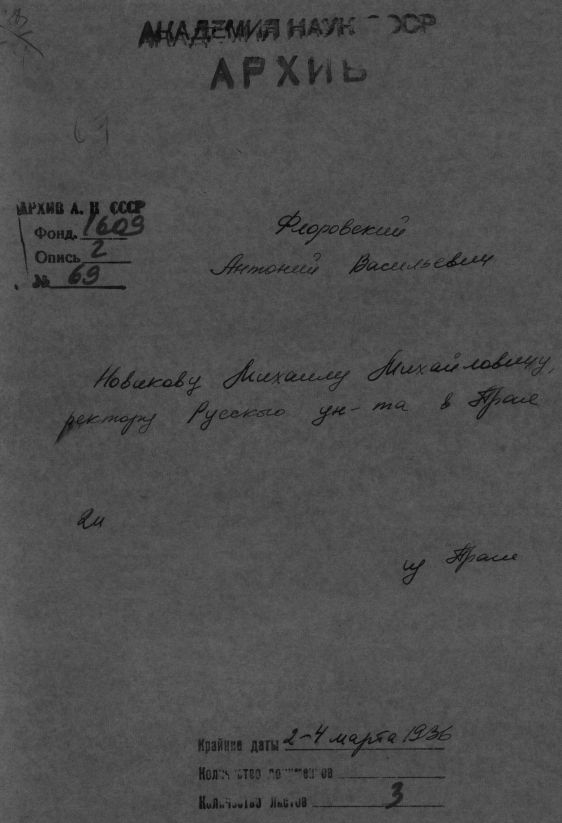 АКАДЕМИЯ НАУК СССР
АРХИВ
69
АРХИВ А. Н. СССР
Фонд. 1609
Опись 2
№ 69
Флоровский
Антоний Васильевич
Новикову Михаилу Михайловичу,
ректору Русского ун-та в Праге
2п
из Праги
Крайние даты 2-4 марта 1936
Количество документов
Количество листов 3